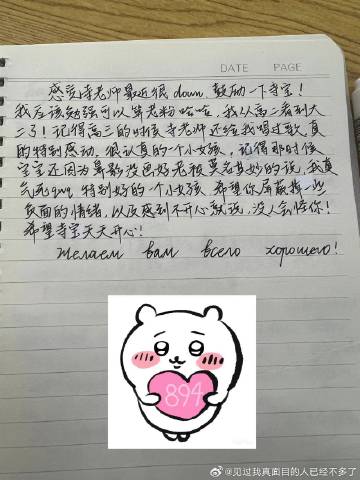 DATE PAGE
感受寺老师最近很down, 鼓励一下寺宝!
我应该勉强可以算老粉哈哈, 我从高二看到大
二了! 记得高三的时候寺老师还给我唱过歌, 真
的特别感动。很认真的一个小女孩。记得那时候
宝宝还因为鼻影没画好老被莫名其妙的说, 我真
气死, 特别好的一个小女孩 希望你屏蔽掉一些
负面的情绪, 以及感到不开心就说, 没人会怪你!
希望寺宝天天开心!
желаем вам всего хорошего!
894
@见过我真面目的人已经不多了